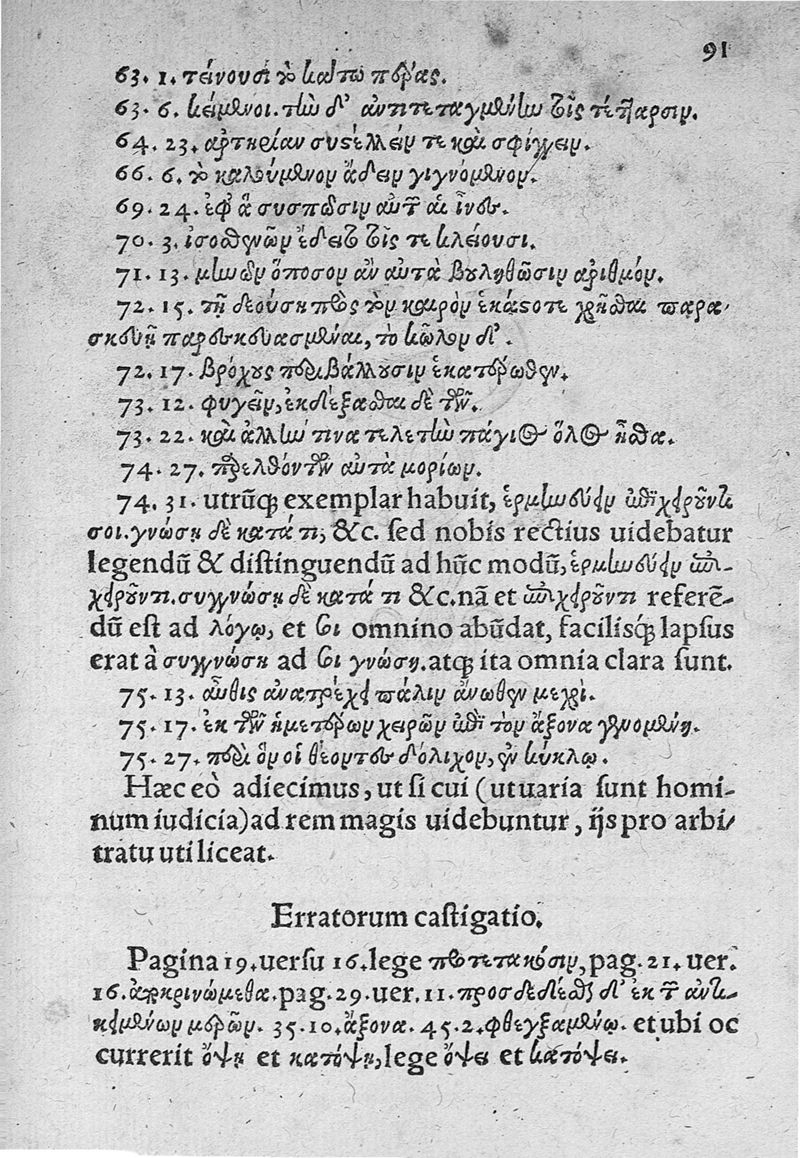 91
63. 1. τείνουσι τὸ κατὰ πέρας.
63. 6. κείμενοι. τὼ δ' ἀντιτεταγμένω τοῖς τέτταρσιν.
64. 23. ἀρτηρίαν συστέλλειν τε καὶ σφίγγειν.
66. 6. τὸ καλούμενον ᾄδειν γιγνόμενον.
69. 24. ἐφ' ἃ συσπῶσιν αὐτὰς αἱ ἶνες.
70. 3. ἰσοσθενῶν ἕδειξ τοῖς τε κλείουσι.
71. 13. ὁπόσον ἂν αὐτὰ βουληθῶσιν ἀριθμόν.
72. 15. τῇ δεούσῃ πρὸς τὸν καιρὸν ἑκάστοτε χρῆσθαι παρα-
σκευῇ παρεσκευασμέναι, τὸ κῶλον δ'.
72. 17. βρόχους περιβάλλουσιν ἑκατέρωθεν.
73. 12. φυγεῖν, ἐκδέξασθαι δὲ τὴν.
73. 22. καὶ ἄλλην τινα τελετὼ πάγιος ὅλος ἦσθα.
74. 27. προελθόντων αὐτὰ μορίων.
74. 31. utrūq; exemplar habuit, ἑρμηνεύειν ἐπιχειροῦντί
σοι. γνώσῃ δὲ κατά τι, &c. sed nobis rectius uidebatur
legendū & distinguendū ad hūc modū, ἑρμηνεύειν ἐπι-
χειροῦντι. συγγνώσῃ δὲ κατά τι &c. nā et ἐπιχειροῦντι referē-
dū est ad λόγῳ, et σοι omnino abūdat, facilisq; lapsus
erat à συγγνώσῃ ad σοι γνώσῃ. atq; ita omnia clara sunt.
75. 13. αὖθις ἀνατρέχει πάλιν ἄνωθεν μέχρι.
75. 17. ἐκ τῶν ἡμετέρων χειρῶν ἐπὶ τὸν ἄξονα γενομένη.
75. 27. περὶ ὃν οἱ θέοντες δόλιχον, ἐν κύκλῳ.
Hæc eò adiecimus, ut si cui (ut uaria sunt homi-
num iudicia) ad rem magis uidebuntur, ijs pro arbi-
tratu uti liceat.
Erratorum castigatio.
Pagina 19. uersu 16. lege προτετακόσιν, pag. 21. uer.
16. ἀποκρινώμεθα. pag. 29. uer. 11. προσδεδέσθαι δ' ἐκ τῶν ἀντι-
κειμένων μερῶν. 35. 10. ἄξονα. 45. 2. φθεγξαμένῳ. et ubi oc
currerit ὄψη et κατόψῃ, lege ὄψει et κατόψει.